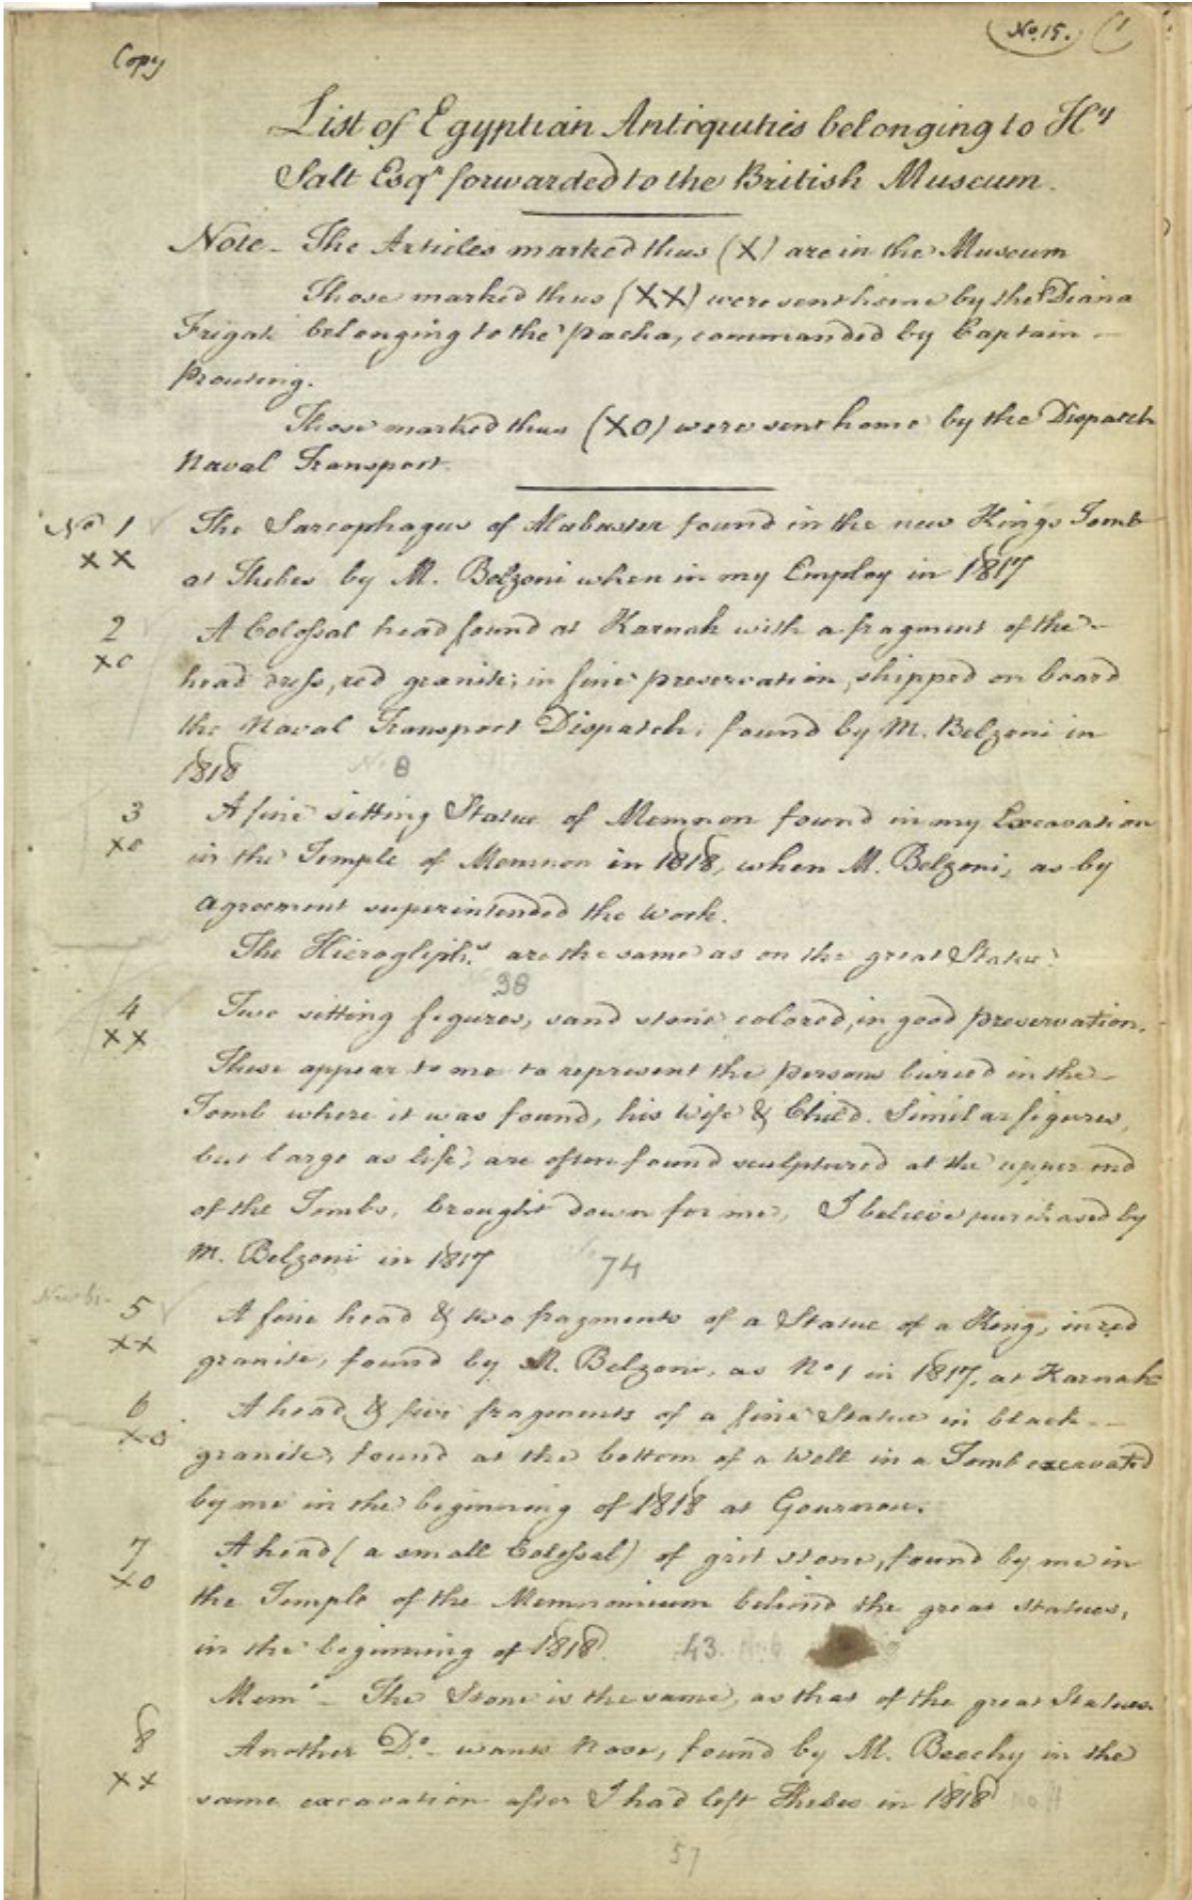 No. 15. 1
Copy
List of Egyptian Antiquities belonging to Hy
Salt Esqr forwarded to the British Museum.
Note - The Articles marked thus (X) are in the Museum
Those marked thus (XX) were sent home by the Diana
Frigate belonging to the Pacha, commanded by Captain -
Prowsing.
Those marked thus (XO) were sent home by the Dispatch
Naval Transport.
No 1 The Sarcophagus of Alabaster found in the new Kings Tomb
XX at Thebes by M. Belzoni when in my Employ in 1817
2 A Colossal head found at Karnak with a fragment of the -
XO head dress, red granite; in fine preservation, shipped on board
the Naval Transport Dispatch; found by M. Belzoni in
1818 No 8
3 A fine sitting Statue of Memnon found in my Excavation
XO in the Temple of Memnon in 1818, when M. Belzoni, as by
agreement superintended the work.
The Hieroglyphs are the same as on the great Statue.
38
4 Two sitting figures, sand stone colored, in good preservation.
XX These appear to me to represent the persons buried in the -
Tomb where it was found, his Wife & Child. Similar figures,
but large as life, are often found sculptured at the upper end
of the Tombs, brought down for me, I believe purchased by
M. Belzoni in 1817 No 74
5 A fine head & two fragments of a Statue of a King, in red
XX granite, found by M. Belzoni, as No 1 in 1817, at Karnak
6 A head & five fragments of a fine Statue in black -
XO granite, found at the bottom of a Well in a Tomb excavated
by me in the beginning of 1818 at Gournou.
7 A head (a small Colossal) of grit stone, found by me in
XO the Temple of the Memnonium behind the great statues,
in the beginning of 1818. 43. No 6
Memo - The Stone is the same, as that of the great Statues.
8 Another Do - wants Nose, found by M. Beechy in the
XX same excavation after I had left Thebes in 1818 No 4
57